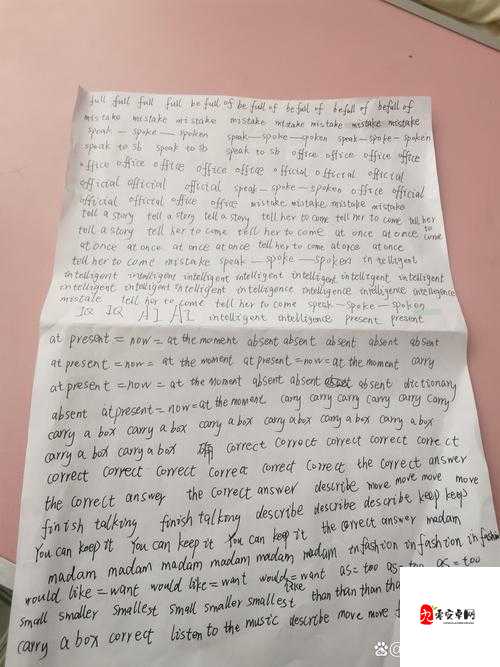 full full full full be full of be full of be full of be full of be full of
mistake mistake mistake mistake mistake mistake mistake mistake
speak — spoke — spoken speak—spoke—spoken speak—spoke—spoken
speak to sb speak to sb speak to sb office office office office
office office office office office official official official
official official official speak—spoke—spoken office office
official official office office mistake mistake, mistake mistake
tell a story tell a story tell a story tell her to come tell her to come tell her
tell a story tell her to come tell her to come at once at once to come
at once at once at once at once tell her to come at once at once
tell her to come mistake speak—spoke—spoken intelligent
intelligent intelligent intelligent intelligent intelligent intelligent intelligent
intelligent intelligent intelligent intelligence intelligence intelligence intelligence
mistake tell her to come tell her to come speak—spoke—spoken
IQ IQ AI AI intelligent intelligence present present
at present = now = at the moment absent absent absent absent absent
at present = now = at the moment at present = now = at the moment carry
at present = now = at the moment absent absent absent dictionary
absent at present = now = at the moment carry carry carry carry carry carry
carry a box carry a box carry a box carry a box carry a box carry a box
carry a box carry a box correct correct correct correct correct
correct correct correct correct correct correct the correct answer
the correct answer the correct answer describe move move move move
finish talking finish talking describe describe describe keep keep
You can keep it You can keep it You can keep it the correct answer madam
madam madam madam madam madam madam in fashion in fashion in fashion
would like = want would like = want would like = want as = too as = too as = too
small smaller smallest small smaller smallest than than than
carry a box correct listen to the music describe move move